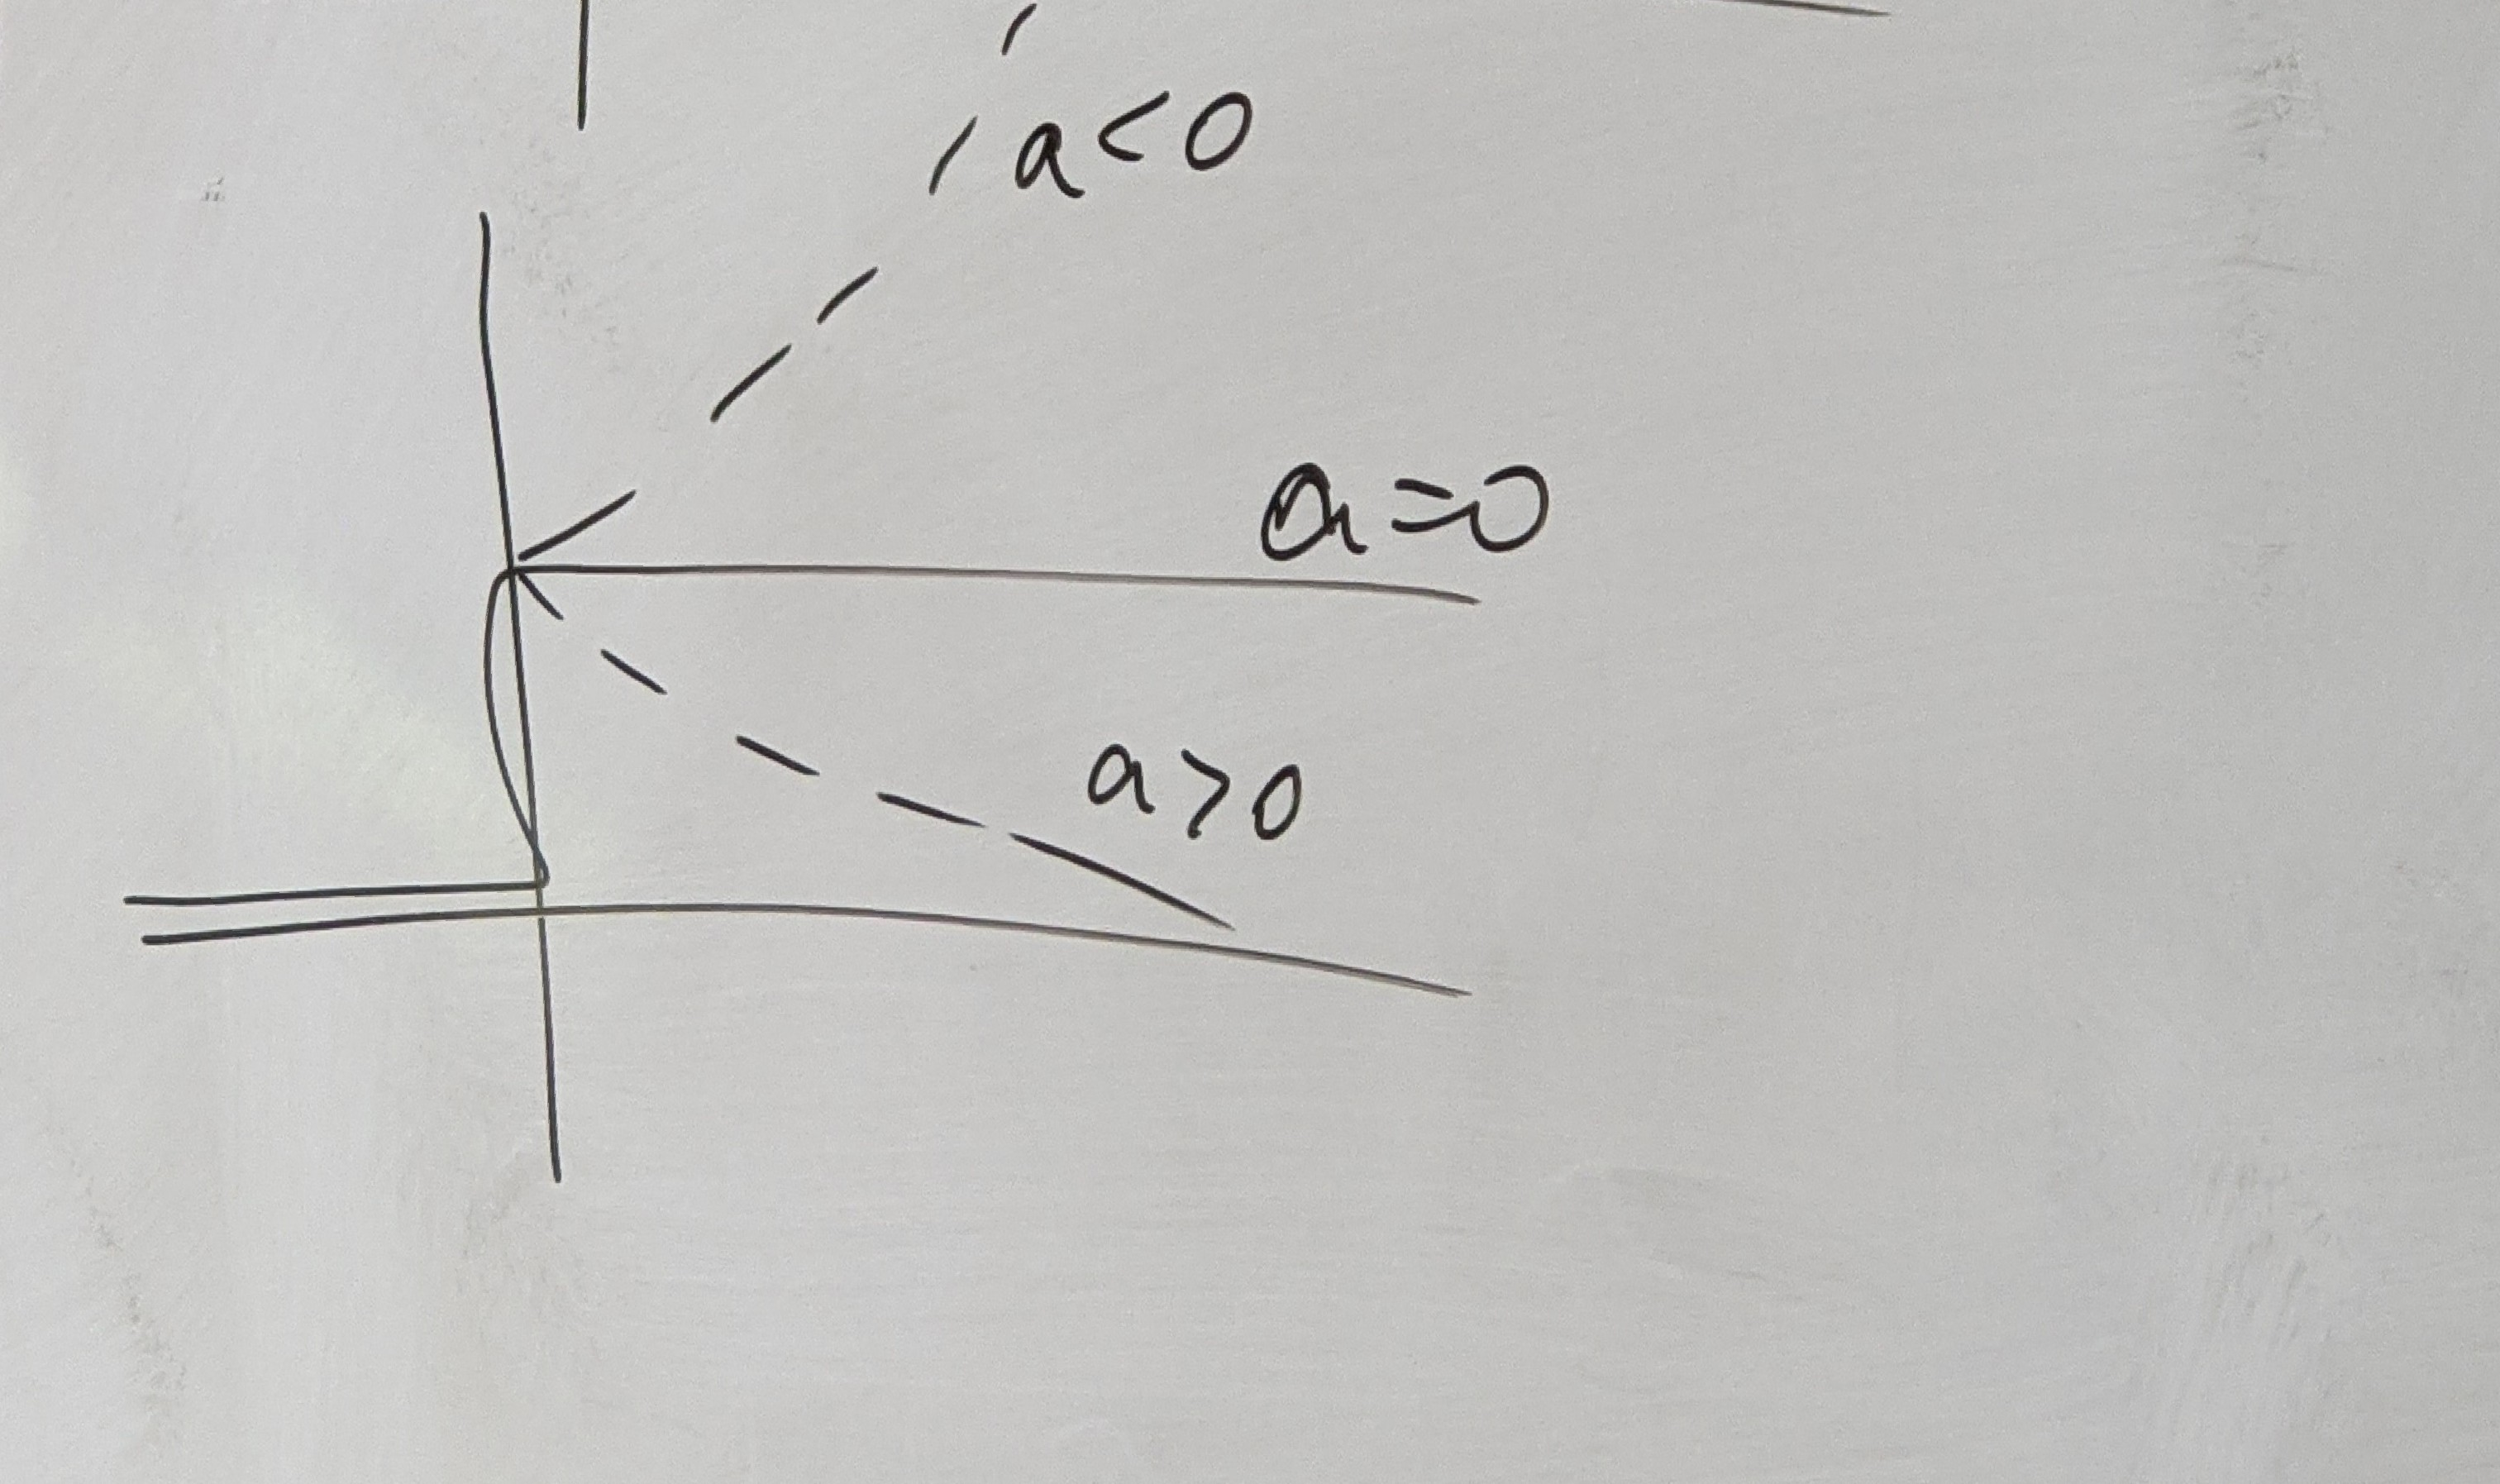 a<0
a=0
a>0